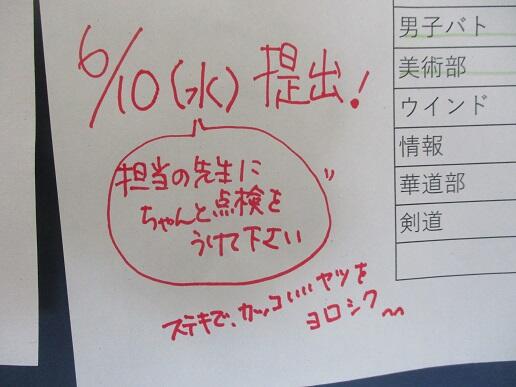 6/10(水)提出!
担当の先生に
ちゃんと点検を
うけて下さい
ステキで、カッコいいヤツを
ヨロシク〜
男子バト
美術部
ウインド
情報
華道部
剣道